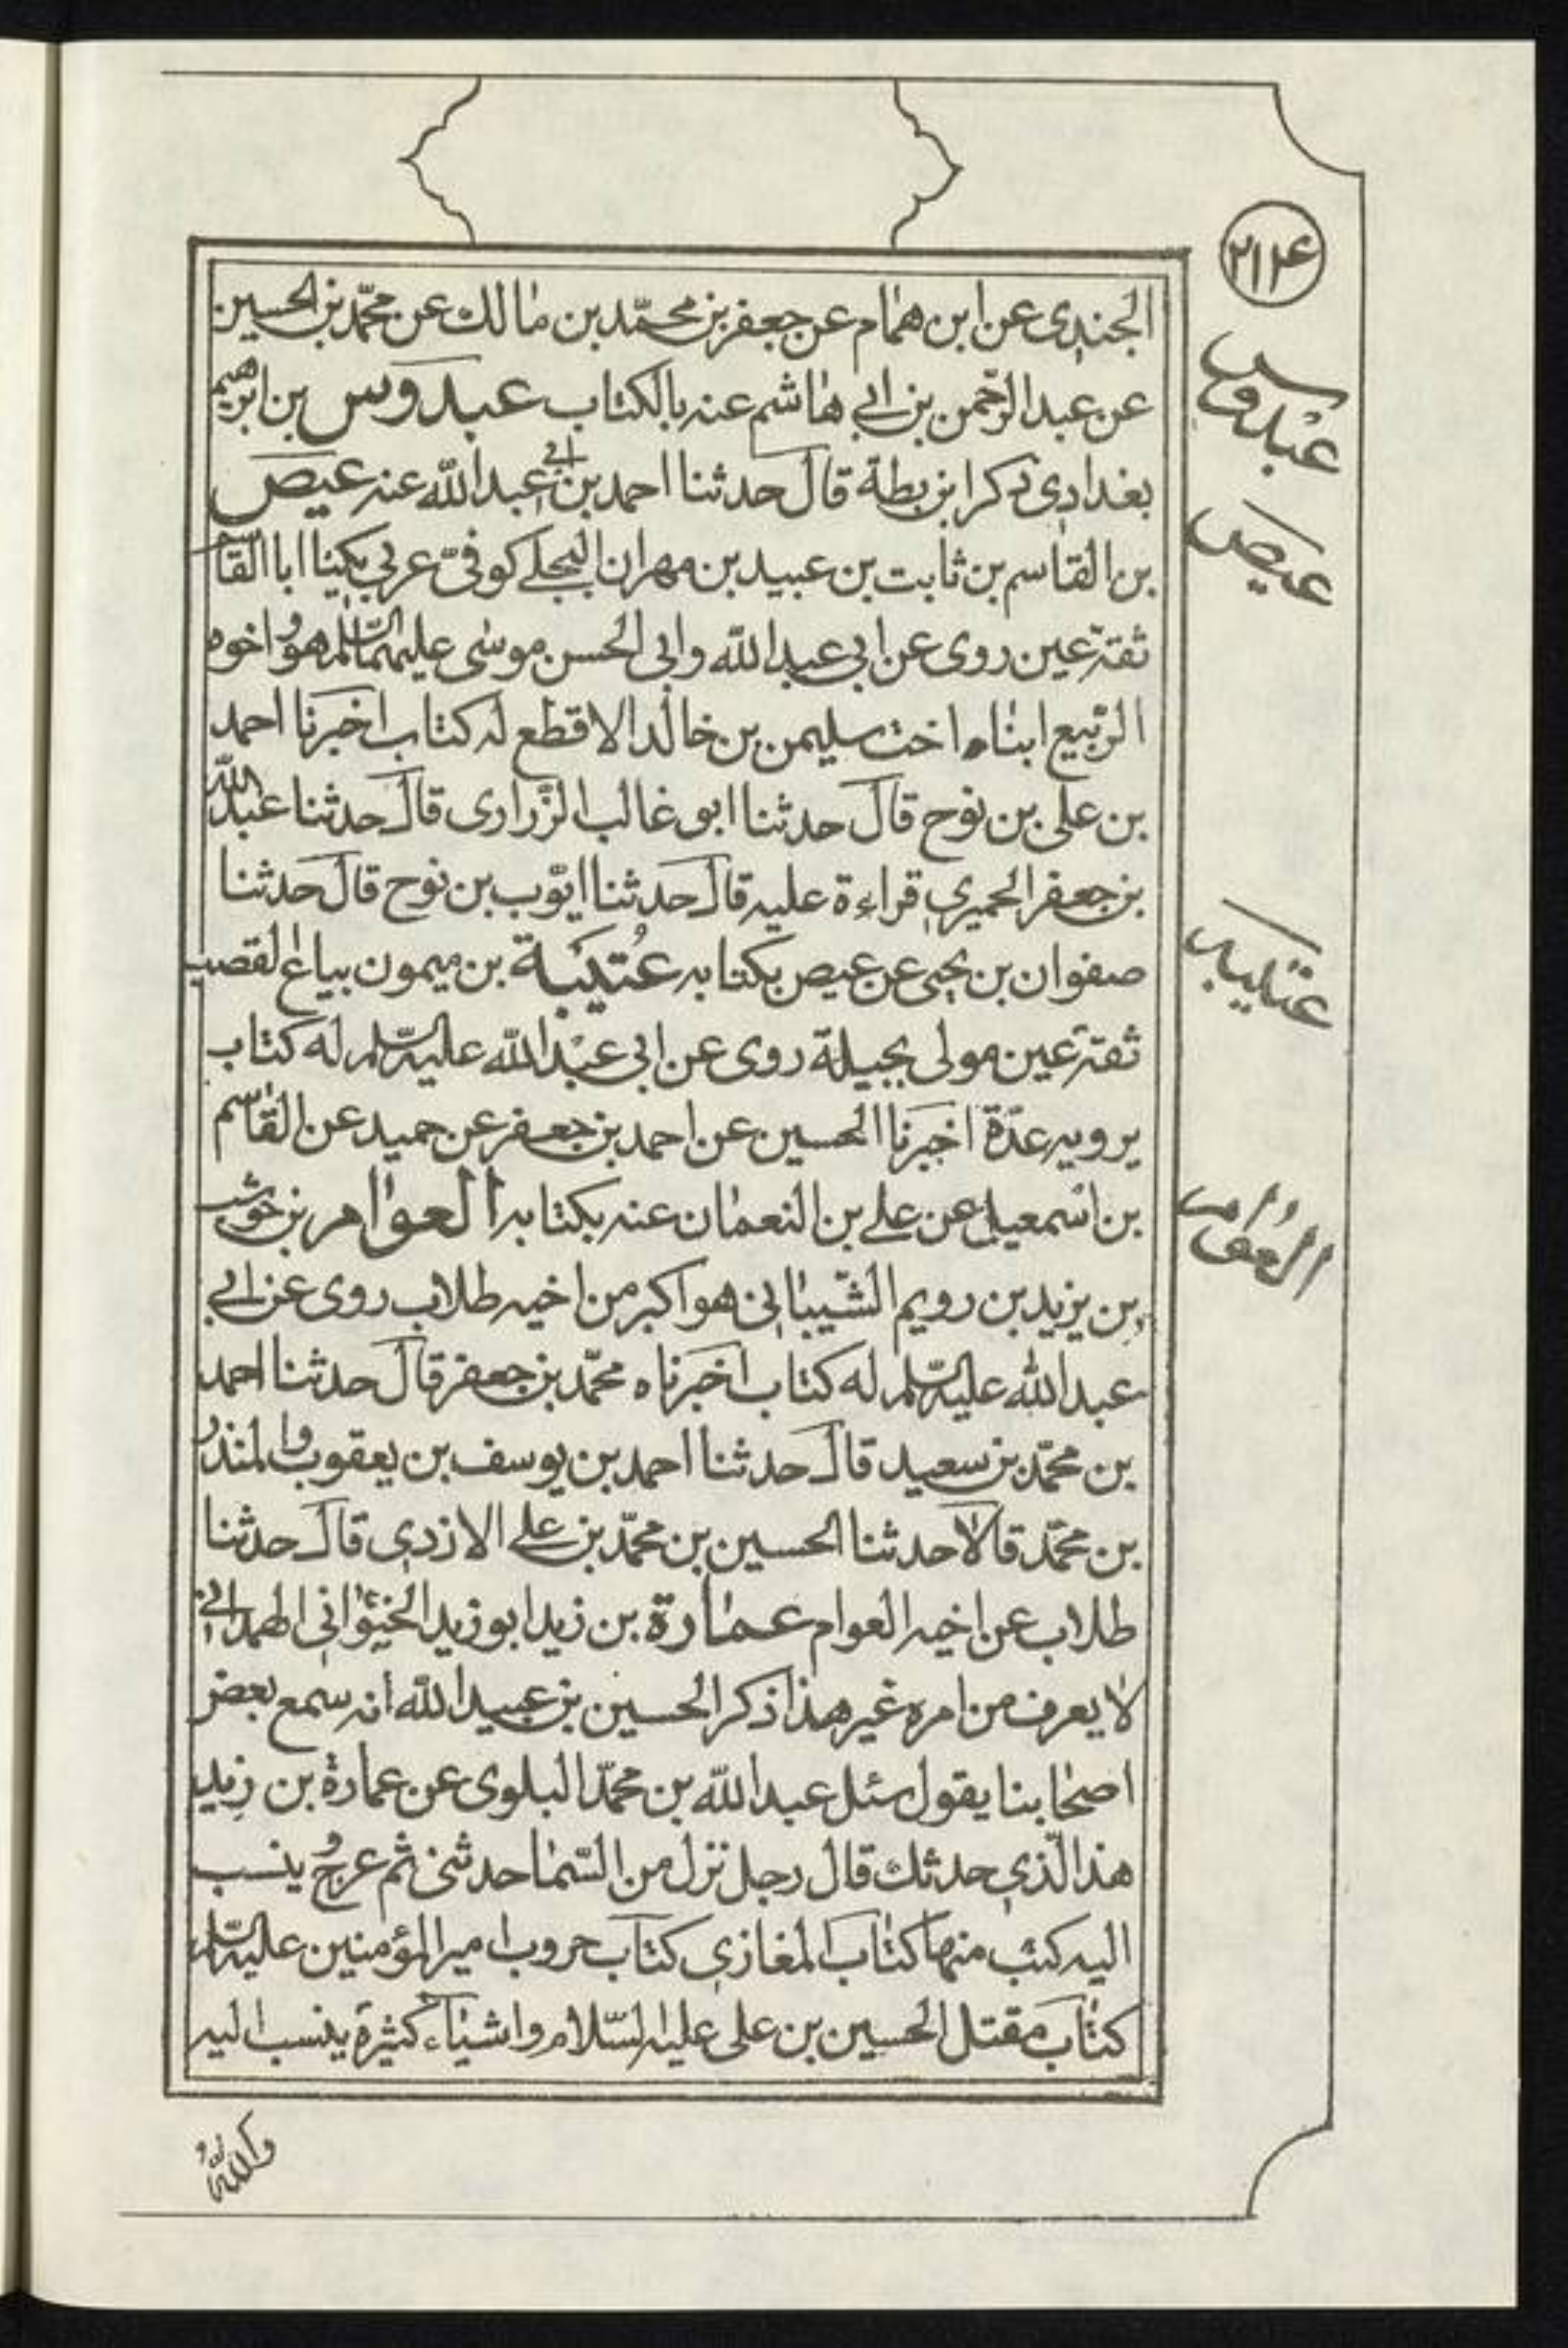 ٢١٤
الجندي عن ابن همام عن جعفر بن محمّد بن مالك عن محمّد بن الحسين
عن عبد الرّحمن بن ابي هاشم عنه بالكتاب عبدوس بن ابرهيم
عبدوس
بغدادي ذكر ابن بطة قال حدثنا احمد بن ابي عبد الله عنه عيص
عيص
بن القاسم بن ثابت بن عبيد بن مهران البجلي كوفيّ عربي يكنا ابا القاسم
ثقة عين روى عن ابي عبد الله وابي الحسن موسى عليهما السّلم هو واخوه
الرّبيع ابناء اخت سليمن بن خالد الاقطع له كتاب اخبرنا احمد
بن على بن نوح قال حدثنا ابو غالب الزّراري قال حدثنا عبد الله
بن جعفر الحميري قراءة عليه قال حدثنا ايّوب بن نوح قال حدثنا
صفوان بن يحيى عن عيص بكتابه عُتَيبَة بن ميمون بياع القصب
عتيبه
ثقة عين مولى بجيلة روى عن ابي عبد الله عليه السّلم له كتاب
يرويه عدّة اخبرنا الحسين عن احمد بن جعفر عن حميد عن القاسم
بن اسمعيل عن علي بن النعمان عنه بكتابه العوام بن حوشب
العوّام
بن يزيد بن رويم الشّيباني هو اكبر من اخيه طلاب روى عن ابي
عبد الله عليه السّلم له كتاب اخبرناه محمّد بن جعفر قال حدثنا احمد
بن محمّد بن سعيد قال حدثنا احمد بن يوسف بن يعقوب والمنذر
بن محمّد قالا حدثنا الحسين بن محمّد بن علي الازدي قال حدثنا
طلاب عن اخيه العوام عمارة بن زيد ابو زيد الخيواني الهمداني
لا يعرف من امره غير هذا ذكر الحسين بن عبيد الله انه سمع بعض
اصحابنا يقول سئل عبد الله بن محمّد البلوى عن عمارة بن زيد
هذا الّذي حدثك قال رجل نزل من السّما حدثني ثم عرج وينسب
اليه كتب منها كتاب المغازي كتاب حروب امير المؤمنين عليه السّلم
كتاب مقتل الحسين بن على عليه السّلام واشياء كثيرة ينسب اليه
والله